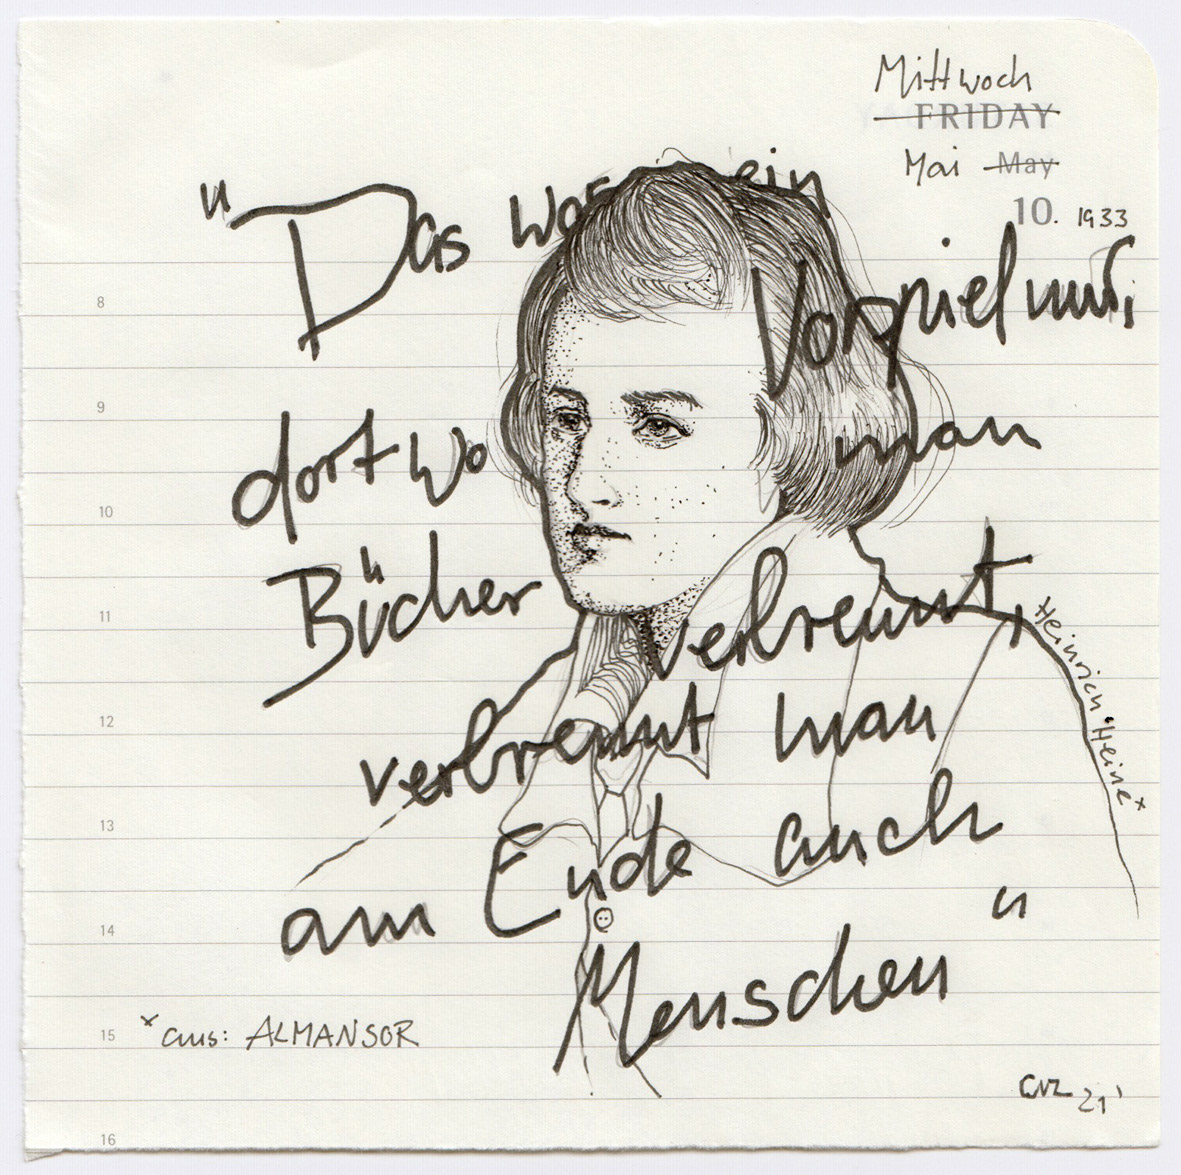 Mittwoch
FRIDAY
Mai May
10. 1933
"Das war ein
Vorspiel nur,
dort wo man
Bücher verbrennt,
verbrennt man
am Ende auch
Menschen"
Heinrich Heine*
*aus: ALMANSOR
21'
8
9
10
11
12
13
14
15
16